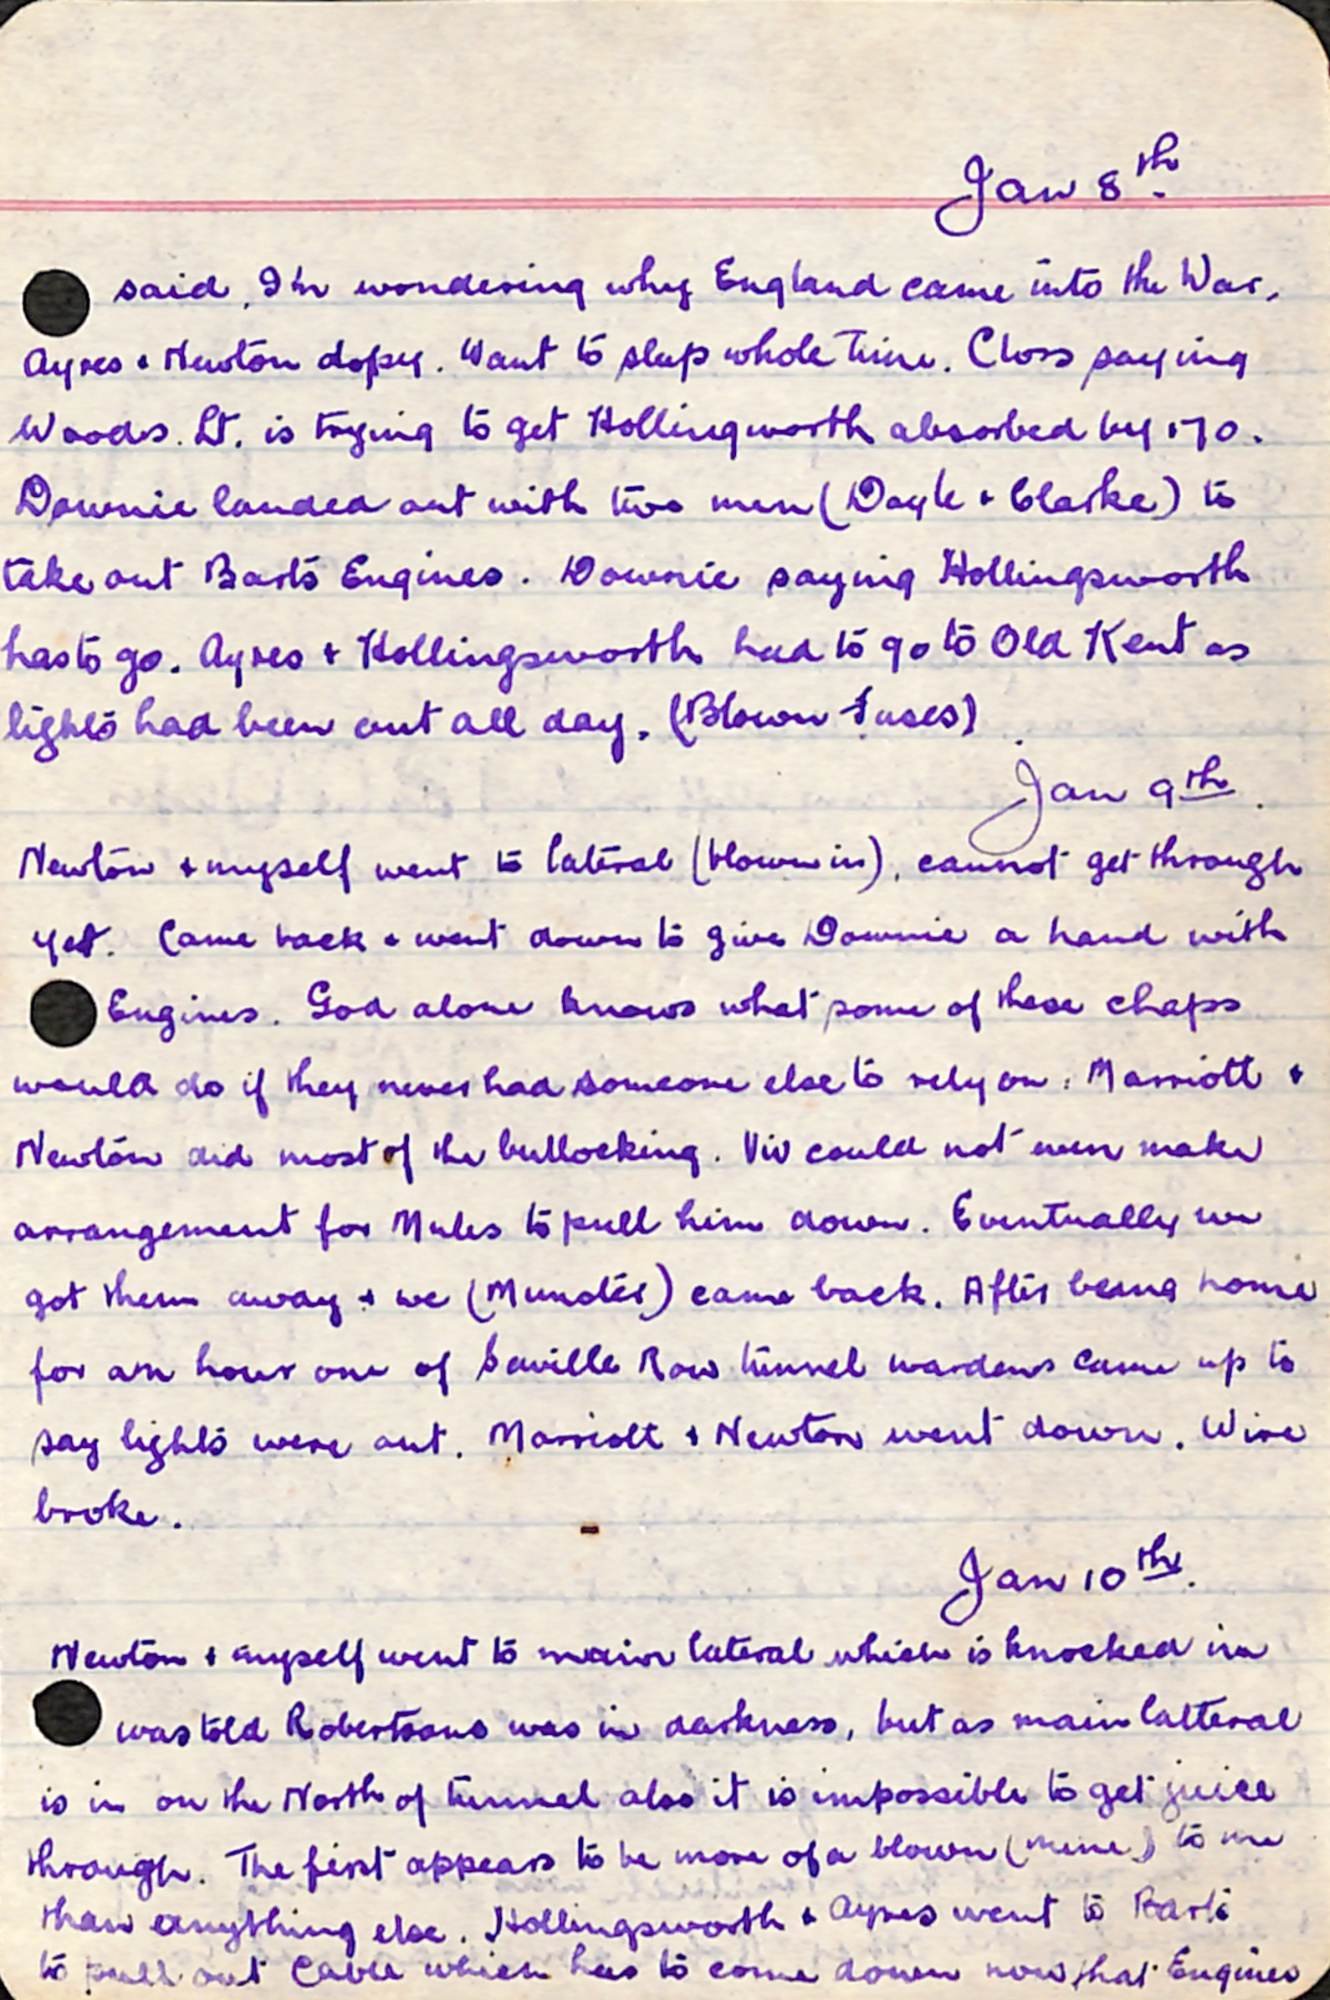 Jan 8th.
said, I'm wondering why England came into the War.
Ayres + Newton dopey. Want to sleep whole time. Closs saying
Woods. Lt. is trying to get Hollingworth absorbed by 170.
Downie landed out with two men (Doyle + Clarke) to
take out Barts Engines. Downie saying Hollingsworth
has to go. Ayres + Hollingsworth had to go to Old Kent as
lights had been out all day. (Blown fuses)
Jan 9th.
Newton + myself went to lateral (blown in), cannot get through
yet. Came back + went down to give Downie a hand with
Engines. God alone knows what some of these chaps
would do if they never had someone else to rely on. Marriott +
Newton did most of the bullocking. Viv could not even make
arrangement for Mules to pull him down. Eventually we
got them away + we (Munster) came back. After being home
for an hour one of Saville Row tunnel wardens came up to
say lights were out. Marriott + Newton went down. Wire
broke.
Jan 10th.
Newton + myself went to main lateral which is knocked in
was told Robertsons was in darkness, but as main latteral
is in on the North of tunnel also it is impossible to get juice
through. The first appears to be more of a blown (mine) to me
than anything else. Hollingsworth + Ayres went to Barts
to pull out Cable which has to come down now that Engines